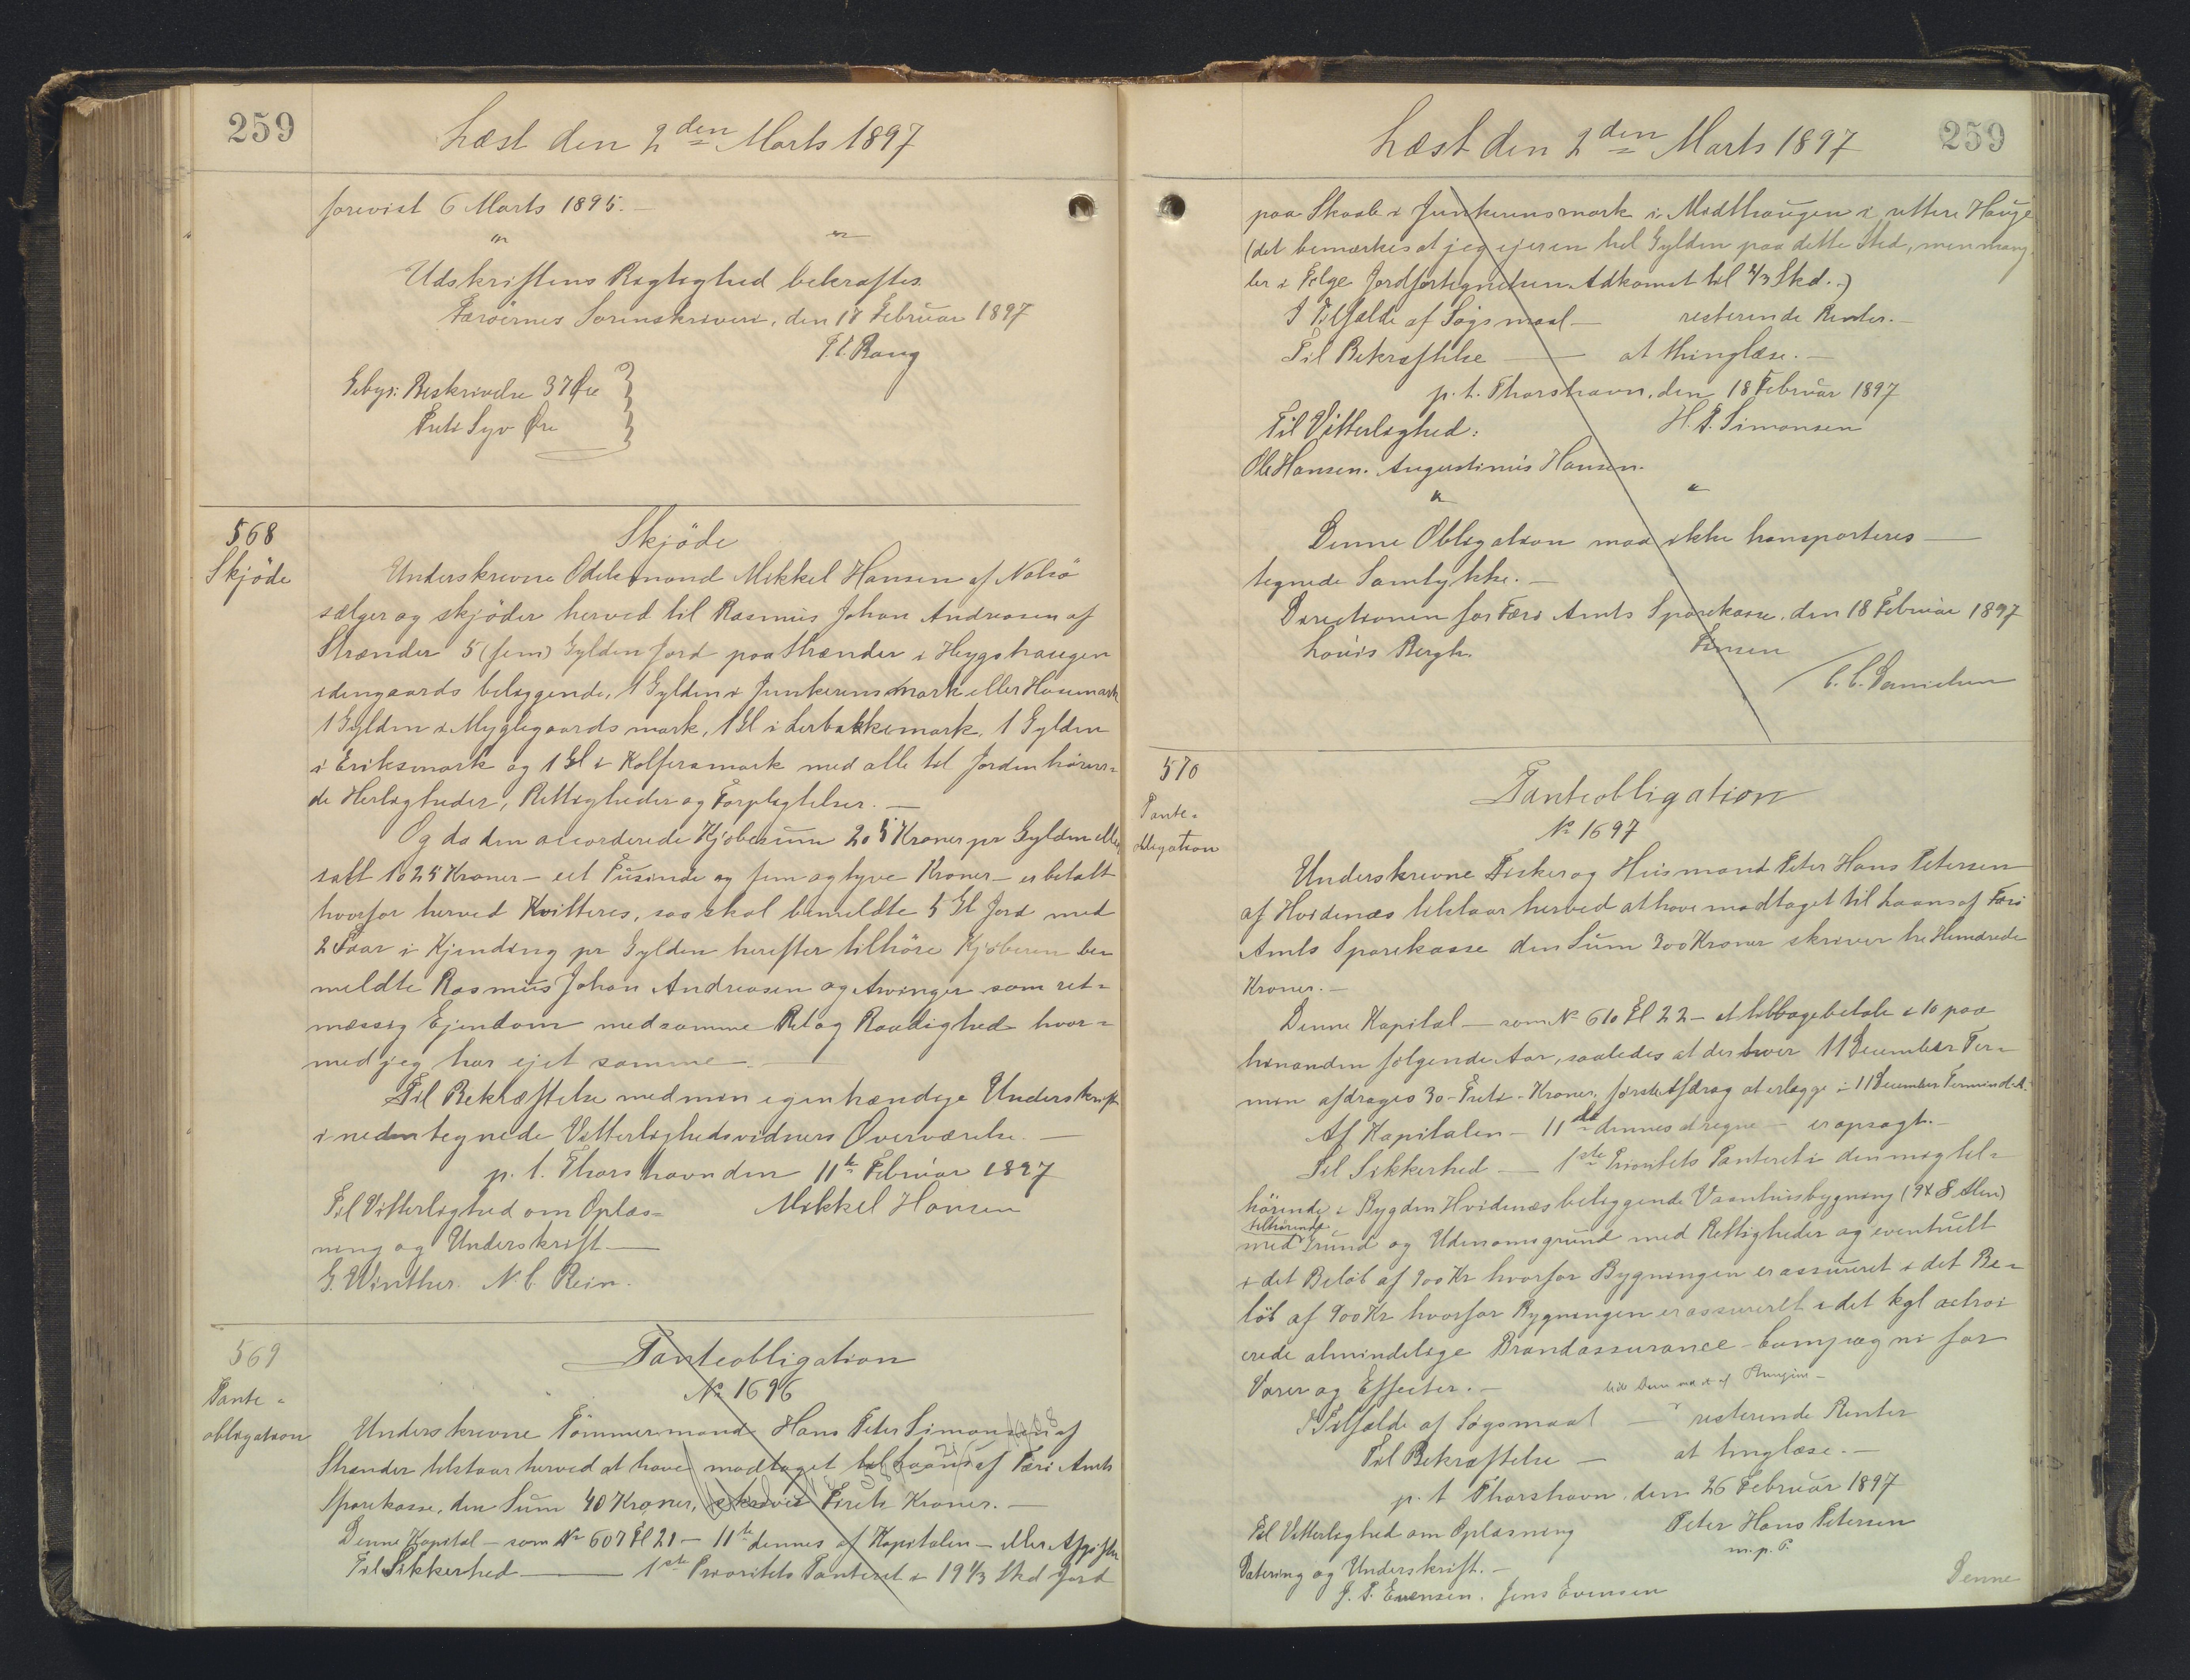 259
Læst den 2den Marts 1897
forevist 6 Marts 1895. —
" "
Udskriftens Rigtighed bekræftes.
Færöernes Sorenskriveri, den 17 Februar 1897
Bang
Gebyr: Beskrivelse 37 Øre
Treti Syv Øre
568
Skjöde
Skjöde
Underskrevne Odelsmand Mikkel Hansen af Nolsö
sælger og skjöder herved til Rasmus Johan Andreasen af
Strænder 5 (fem) Gylden Jord paa Strænder i Heygshaugen
idengaards beliggende, 1 Gylden i Junkerensmark eller Husemark
1 Gylden i Myglegaards mark, 1 Gl i Lerbakkemark, 1 Gylden
i Eriksmark og 1 Gl i Kolferamark med alle til Jorden hören=
de Herligheder, Rettigheder og Forpligtelser. —
Og da den accorderede Kjöbesum 205 Kroner pr Gylden eller
ialt 1025 Kroner — eet Tusinde og fem og tyve Kroner — er betalt
hvorfor herved Kvitteres, saa skal bemeldte 5 Gl Jord med
2 Faar i Kjending pr Gylden herefter tilhöre Kjöberen be
meldte Rasmus Johan Andreasen og Arvinger som ret=
mæssig Ejendom med samme Ret og Raadighed hvor=
med jeg har ejet samme. —
Til Bekræftelse med min egenhændige Underskrift
i nedentegnede Vitterlighedsvidners Overværelse. —
p. t. Thorshavn den 11te Februar 1897
Til Vitterlighed om Oplæs= Mikkel Hansen
ning og Underskrift —
G. Winther. N C Rein.
569
Pante=
obligation
Panteobligation
No 1696
Underskrevne Tömmermand Hans Peter Simonsen af
Strænder tilstaar herved at have modtaget til Laans af Færö Amts
Sparekasse, den Sum 40 Kroner, skriver Fireti Kroner. —
Denne Kapital — som No 607 Fl 21 — 11te dennes af Kapitalen — eller Afgifter
Til Sikkerhed — 1ste Prioritets Panteret i 19 1/3 Skd Jord
259
Læst den 2den Marts 1897
paa Skaale i Junkerensmark i Midthaugen i yttere Hauge
(det bemærkes at jeg ejer en hel Gylden paa dette Sted, men mang
ler i Følge Jordfortegnelsen Adkomst til 2/3 Skd.)
I Tilfælde af Søgsmaal — resterende Renter. —
Til Bekræftelse — at thinglæse. —
p. t. Thorshavn, den 18 Februar 1897
Til Vitterlighed: H. P. Simonsen
Ole Hansen. Augustinus Hansen.
" "
Denne Obligation maa ikke transporteres —
tegnede Samtykke. —
Directionen for Færö Amts Sparekasse, den 18 Februar 1897
Louis Bergh. Jensen
C. C. Danielsen
570
Pante=
obligation
Panteobligation
No 1697
Underskrevne Fisker og Husmand Peter Hans Petersen
af Hvidenæs tilstaar herved at have modtaget til Laans af Færö
Amts Sparekasse den Sum 300 Kroner skriver tre Hundrede
Kroner. —
Denne Kapital — som No 610 Fl 22 — at tilbagebetale i 10 paa
hinanden følgende Aar, saaledes at der hver 11 December Ter=
min afdrages 30 - Treti - Kroner, første Afdrag at erlægge i 11 December Termin d. A.
Af Kapitalen — 11te dennes at regne — er opsagt. —
Til Sikkerhed — 1ste Prioritets Panteret i den mig til=
hörende i Bygden Hvidenæs beliggende Vaanhusbygning (9 x 8 Alen)
tilhörende
med Grund og Udenomsgrund med Rettigheder og eventuelt
i det Beløb af 900 Kr hvorfor Bygningen er assureret i det Be=
løb af 900 Kr hvorfor Bygningen er assureret i det kgl octroi
erede almindelige Brandassurance-Compagni for
Varer og Effecter. —
I Tilfælde af Søgsmaal — resterende Renter
Til Bekræftelse — at tinglæse. —
p. t Thorshavn, den 26 Februar 1897
Til Vitterlighed om Oplæsning Peter Hans Petersen
m. p. P.
Datering og Underskrift. —
J. P. Evensen. Jens Evensen
Denne